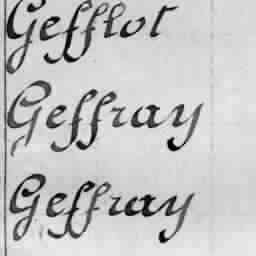 Gefflot
Geffray
Geffray